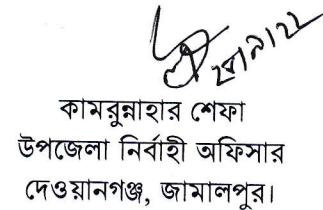 কামরুন্নাহার শেফা
উপজেলা নির্বাহী অফিসার
দেওয়ানগঞ্জ, জামালপুর।